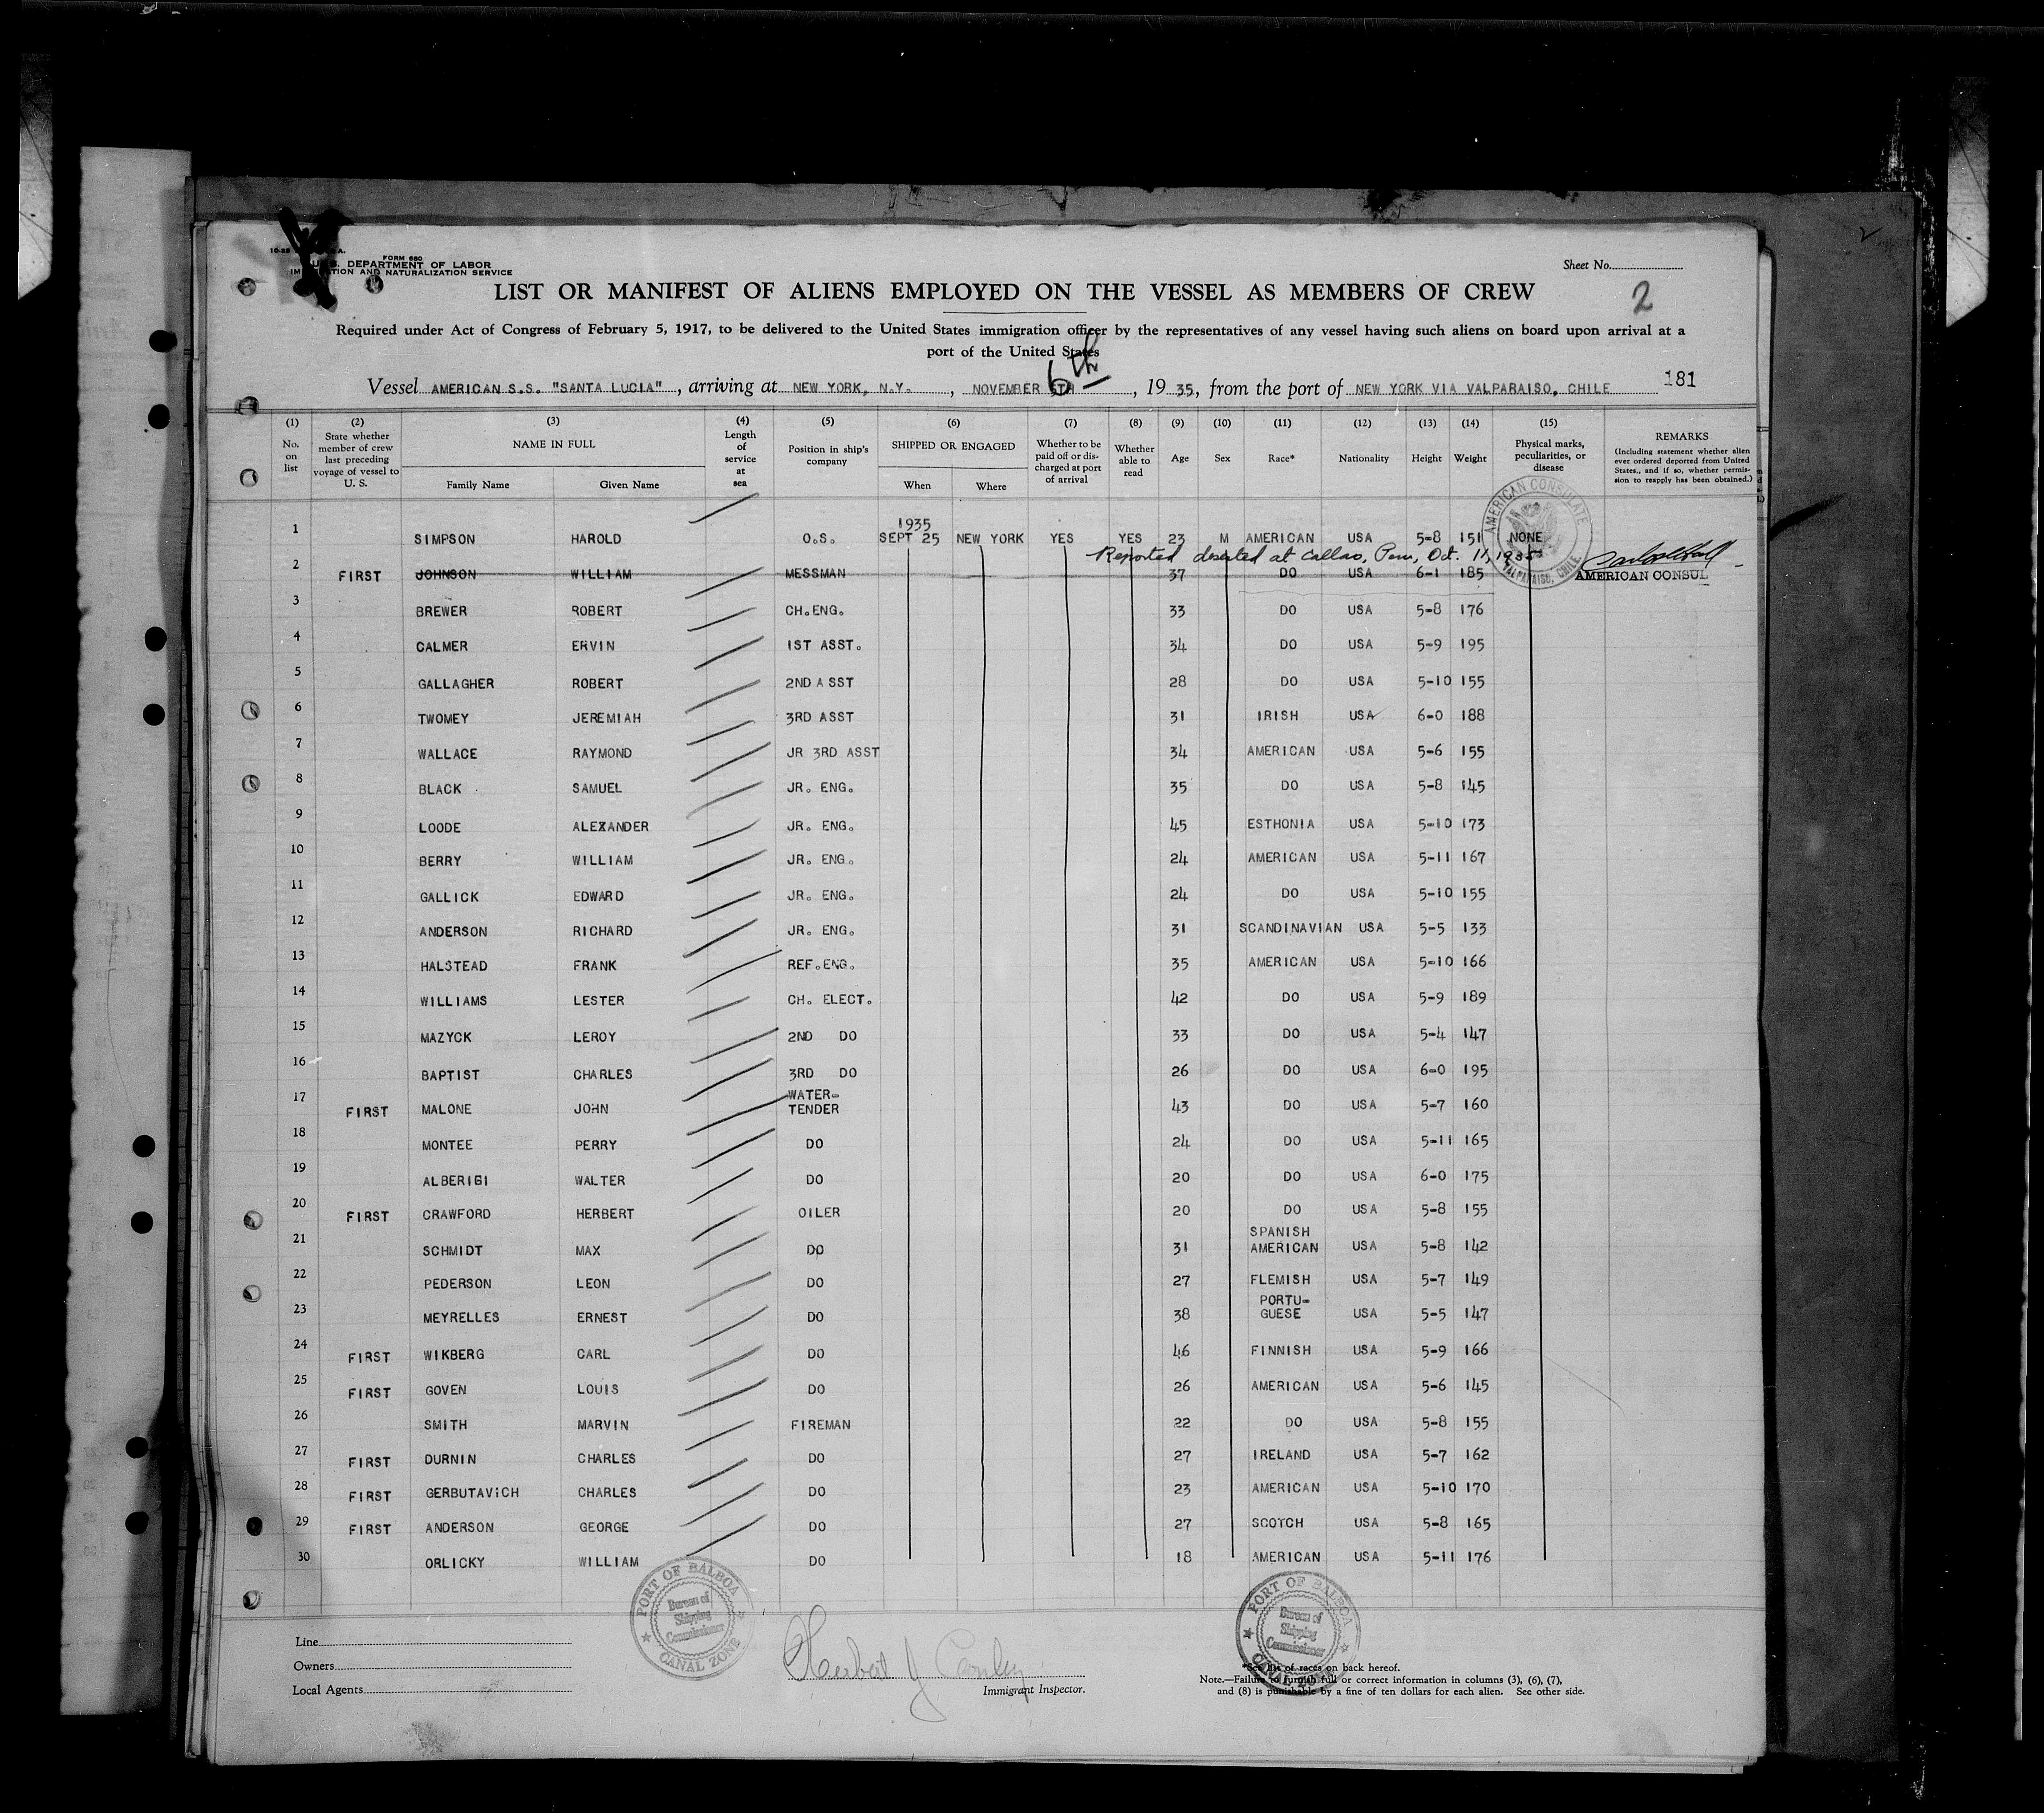 10-35
FORM 680
U.S. DEPARTMENT OF LABOR
IMMIGRATION AND NATURALIZATION SERVICE
Sheet No.
LIST OR MANIFEST OF ALIENS EMPLOYED ON THE VESSEL AS MEMBERS OF CREW
2
Required under Act of Congress of February 5, 1917, to be delivered to the United States immigration officer by the representatives of any vessel having such aliens on board upon arrival at a
port of the United States
6th
Vessel AMERICAN S.S. "SANTA LUCIA", arriving at NEW YORK, N.Y., NOVEMBER 5TH, 1935, from the port of NEW YORK VIA VALPARAISO, CHILE 181
(1) No. on list (2) State whether member of crew last preceding voyage of vessel to U. S. (3) NAME IN FULL Family Name Given Name (4) Length of service at sea (5) Position in ship's company (6) SHIPPED OR ENGAGED When Where (7) Whether to be paid off or discharged at port of arrival (8) Whether able to read (9) Age (10) Sex (11) Race* (12) Nationality (13) Height (14) Weight (15) Physical marks, peculiarities, or disease REMARKS (Including statement whether alien ever ordered deported from United States, and if so, whether permission to reapply has been obtained.)
AMERICAN CONSULATE VALPARAISO, CHILE
1935
1 SIMPSON HAROLD O.S. SEPT 25 NEW YORK YES YES 23 M AMERICAN 5-8 151 NONE
Reported deserted at Callao, Peru, Oct. 11, 1935
2 FIRST JOHNSON WILLIAM MESSMAN 37 DO USA 6-1 185 AMERICAN CONSUL
3 BREWER ROBERT CH.ENG. 33 DO USA 5-8 176
4 CALMER ERVIN 1ST ASST. 34 DO USA 5-9 195
5 GALLAGHER ROBERT 2ND ASST 28 DO USA 5-10 155
6 TWOMEY JEREMIAH 3RD ASST 31 IRISH USA 6-0 188
7 WALLACE RAYMOND JR 3RD ASST 34 AMERICAN USA 5-6 155
8 BLACK SAMUEL JR. ENG. 35 DO USA 5-8 145
9 LOODE ALEXANDER JR. ENG. 45 ESTHONIA USA 5-10 173
10 BERRY WILLIAM JR. ENG. 24 AMERICAN USA 5-11 167
11 GALLICK EDWARD JR. ENG. 24 DO USA 5-10 155
12 ANDERSON RICHARD JR. ENG. 31 SCANDINAVIAN USA 5-5 133
13 HALSTEAD FRANK REF.ENG. 35 AMERICAN USA 5-10 166
14 WILLIAMS LESTER CH. ELECT. 42 DO USA 5-9 189
15 MAZYCK LEROY 2ND DO 33 DO USA 5-4 147
16 BAPTIST CHARLES 3RD DO 26 DO USA 6-0 195
17 FIRST MALONE JOHN WATER-TENDER 43 DO USA 5-7 160
18 MONTEE PERRY DO 24 DO USA 5-11 165
19 ALBERIGI WALTER DO 20 DO USA 6-0 175
20 FIRST CRAWFORD HERBERT OILER 20 DO USA 5-8 155
21 SCHMIDT MAX DO 31 SPANISH AMERICAN USA 5-8 142
22 PEDERSON LEON DO 27 FLEMISH USA 5-7 149
23 MEYRELLES ERNEST DO 38 PORTU-GUESE USA 5-5 147
24 FIRST WIKBERG CARL DO 46 FINNISH USA 5-9 166
25 FIRST GOVEN LOUIS DO 26 AMERICAN USA 5-6 145
26 SMITH MARVIN FIREMAN 22 DO USA 5-8 155
27 FIRST DURNIN CHARLES DO 27 IRELAND USA 5-7 162
28 FIRST GERBUTAVICH CHARLES DO 23 AMERICAN USA 5-10 170
29 FIRST ANDERSON GEORGE DO 27 SCOTCH USA 5-8 165
30 ORLICKY WILLIAM DO 18 AMERICAN USA 5-11 176
PORT OF BALBOA Bureau of Shipping Commissioner CANAL ZONE
PORT OF BALBOA Bureau of Shipping Commissioner CANAL ZONE
Line
Owners
Local Agents
Herbert J Conley
Immigrant Inspector.
*See list of races on back hereof.
Note.—Failure to furnish full or correct information in columns (3), (6), (7),
and (8) is punishable by a fine of ten dollars for each alien. See other side.